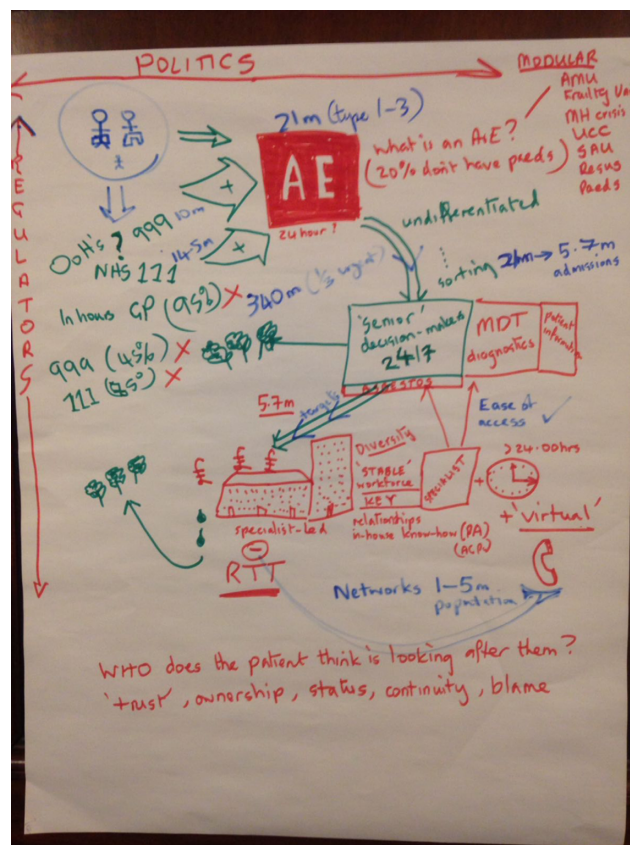 POLITICS
MODULAR
AMU
Frailty
MH crisis
UCC
SAU
Resus
Paeds
REGULATORS
21m (type 1-3)
AE
24 hour?
What is an A+E?
(20% don't have paeds)
+
+
OoH's ? 999 10m
NHS 111 14.5m
In hours GP (95%) X 340m (1/3 urgent)
999 (45%) X
111 (85%) X
undifferentiated
sorting 21m → 5.7m
admissions
'senior'
decision-makers
24/7
MDT
diagnostics
Patient
ASBESTOS
5.7m
targets
Ease of
access ✓
Diversity
'STABLE'
workforce
KEY
relationships
in-house know-how (PA)
(ACP)
SPECIALIST
+
>24.00hrs
+ 'virtual'
£ £ £
specialist-led
-
RTT
Networks 1-5m
population
WHO does the patient think is looking after them?
'trust', ownership, status, continuity, blame